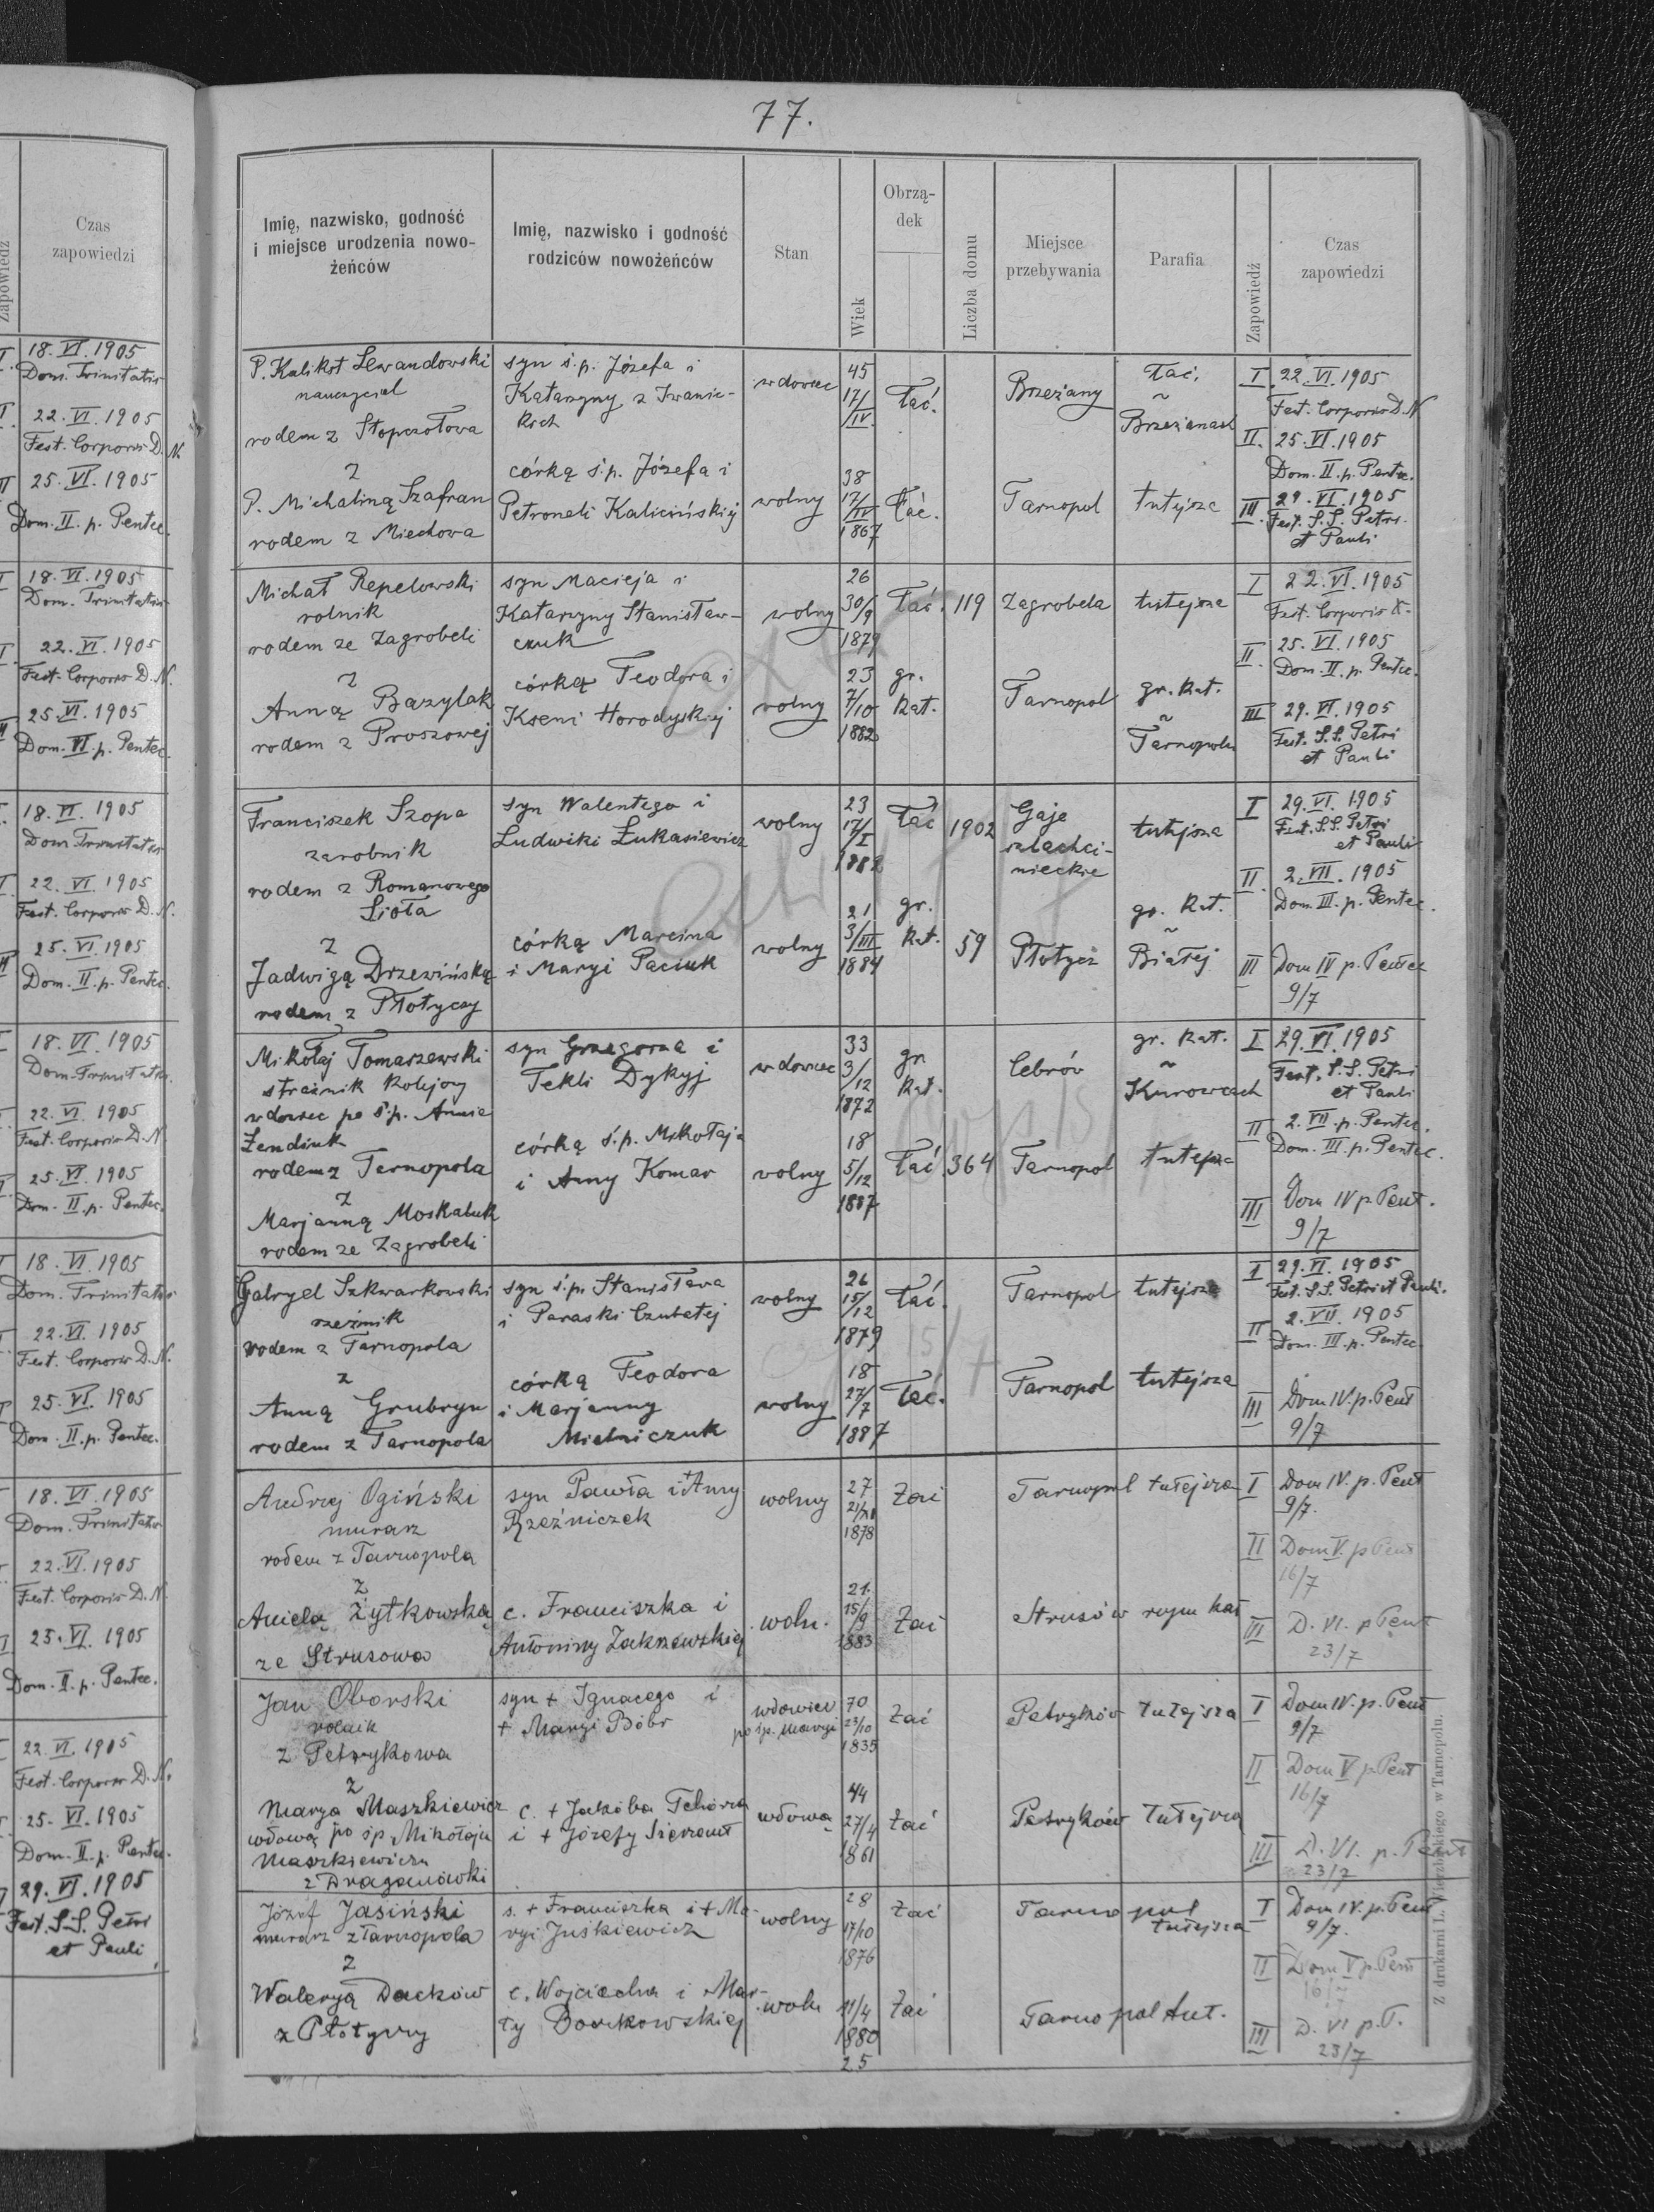 Zapowiedź
Czas
zapowiedzi
18. VI. 1905
Dom. Trinitatis
22. VI. 1905
Fest. Corporis D. N.
25. VI. 1905
Dom. II. p. Pentec.
18. VI. 1905
Dom. Trinitatis
22. VI. 1905
Fest. Corporis D. N.
25. VI. 1905
Dom. VI. p. Pentec.
18. VI. 1905
Dom. Trinitatis
22. VI. 1905
Fest. Corporis D. N.
25. VI. 1905
Dom. II. p. Pentec.
18. VI. 1905
Dom. Trinitatis
22. VI. 1905
Fest. Corporis D. N.
25. VI. 1905
Dom. II. p. Pentec.
18. VI. 1905
Dom. Trinitatis
22. VI. 1905
Fest. Corporis D. N.
25. VI. 1905
Dom. II. p. Pentec.
18. VI. 1905
Dom. Trinitatis
22. VI. 1905
Fest. Corporis D. N.
25. VI. 1905
Dom. II. p. Pentec.
22. VI. 1905
Fest. Corporis D. N.
25. VI. 1905
Dom. II. p. Pentec.
29. VI. 1905
Fest. S.S. Petri
et Pauli
77.
Imię, nazwisko, godność
i miejsce urodzenia nowo-
żeńców
Imię, nazwisko i godność
rodziców nowożeńców
Stan
Wiek
Obrzą-
dek
Liczba domu
Miejsce
przebywania
Parafia
Zapowiedź
Czas
zapowiedzi
P. Kalikst Lewandowski
nauczyciel
rodem z Stopczatowa
syn ś.p. Józefa i
Katarzyny z Iwanic-
kich
wdowiec
45
17/
IV.
łać.
Brzeżany
łać.
~
Brzeżanach
I 22. VI. 1905
Fest. Corporis D. N
II. 25. VI. 1905
Dom. II. p. Pentec.
z
P. Michaliną Szafran
rodem z Miechowa
córką ś.p. Józefa i
Petroneli Kalicińskiej
wolny
38
17/
IV
1867
łać.
Tarnopol
tutejsza
III. 29. VI. 1905
Fest. S.S. Petri
et Pauli
Michał Repelowski
rolnik
rodem ze Zagrobeli
syn Macieja i
Katarzyny Stanisław-
czuk
wolny
26
30/9
1879
łać.
119
Zagrobela
tutejsza
I 22. VI. 1905
Fest. Corporis
II. 25. VI. 1905
Dom. II. p. Pentec.
z
Anną Bazylak
rodem z Proszowej
córką Teodora i
Kseni Horodyskiej
wolny
23
7/10
1882
gr.
kat.
Tarnopol
gr. kat.
~
Tarnopolu
III 29. VI. 1905
Fest. S.S. Petri
et Pauli
Franciszek Szopa
zarobnik
rodem z Romanowego
Sioła
syn Walentego i
Ludwiki Łukasiewicz
wolny
23
17/
I
1882
łać
1902
Gaje
szlachci-
nieckie
tutejsza
I 29. VI. 1905
Fest. S.S. Petri
et Pauli
II. 2. VII. 1905
Dom. III. p. Pentec.
z
Jadwigą Drzewińską
rodem z Płotyczy
córką Marcina
i Maryi Paciuk
wolny
21
3/III
1884
gr.
kat.
59
Płotycz
gr. kat.
~
Białej
III Dom IV p. Pentec
9/7
Mikołaj Tomaszewski
strażnik kolejowy
wdowiec po ś.p. Annie
Żendziuk
rodem z Tarnopola
syn Grzegorza i
Tekli Dykyj
wdowiec
33
3/
12
1872
gr
kat.
Cebrów
gr. kat.
~
Kurowcach
I 29. VI. 1905
Fest. S.S. Petri
et Pauli
II 2. VII. p. Pentec.
Dom. III. p. Pentec.
z
Marjanną Moskaluk
rodem ze Zagrobeli
córką ś.p. Mikołaja
i Anny Komar
wolny
18
5/12
1887
łać
364
Tarnopol
tutejsza
III Dom IV p Pent.
9/7
Gabryel Szkwarkowski
rzeźnik
rodem z Tarnopola
syn ś.p. Stanisława
i Paraski Czubatej
wolny
26
15/12
1879
łać.
Tarnopol
tutejsza
I 29. VI. 1905
Fest. S.S. Petri et Pauli.
II 2. VII. 1905
Dom. III. p. Pentec.
z
Anną Grubryn
rodem z Tarnopola
córką Teodora
i Marjanny
Mielniczuk
wolny
18
27/
7
1887
łać.
Tarnopol
tutejsza
III Dom IV. p. Pent
9/7
Andrzej Ogiński
murarz
rodem z Tarnopola
syn Pawła i +Anny
Rzeźniczek
wolny
27
21/XI
1878
łać
Tarnopol
tutejsza
I Dom IV. p. Pent
9/7.
II Dom V. p Pent
16/7
z
Anielą Żytkowską
ze Strusowa
c. Franciszka i
Antoniny Zakrzewskiej
woln.
21.
15/
9
1883
łać
Strusów
rzym kat
III D. VI. p Pent
23/7
Jan Oborski
rolnik
z Petrykowa
syn + Ignacego i
+ Maryi Bóbr
wdowiec
po śp. Maryi
70
23/10
1835
łać
Petryków
tutejsza
I Dom IV. p. Pent
9/7
II Dom V p Pent
16/7
z
Marya Maszkiewicz
wdową po śp Mikołaju
Maszkiewiczu
z Draganówki
c. + Jakóba Tchórza
i + Józefy
wdowa
44
27/4
1861
łać
Petryków
tutejsza
III D. VI. p. Pent
23/7
Józef Jasiński
murarz z Tarnopola
s. + Franciszka i + Ma-
ryi Juśkiewicz
wolny
28
17/10
1876
łać
Tarnopol
tutejsza
I Dom IV. p. Pent
9/7.
II Dom V p. Pent
16/7
z
Waleryą Daćków
z Płotyczy
c. Wojciecha i Mar-
ty Borkowskiej
woln
11/4
1880
25
łać
Tarnopol tut.
III D. VI p. P.
23/7
Z drukarni L. Wierzbickiego w Tarnopolu.